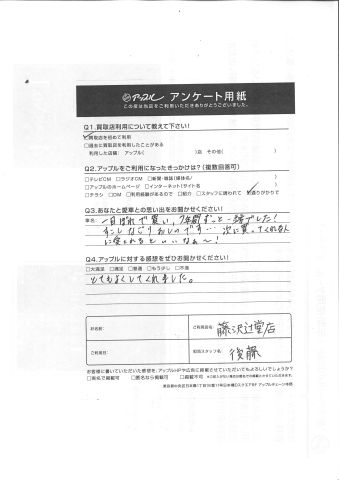 アップル アンケート用紙
この度は当店をご利用いただきありがとうございました。
Q1.買取店利用について教えて下さい!
☑買取店を初めて利用
□過去に買取店を利用したことがある
利用した店舗: アップル( )店 その他( )
Q2.アップルをご利用になったきっかけは?(複数回答可)
□テレビCM □ラジオCM □新聞・雑誌(媒体名/ )
□アップルのホームページ □インターネット(サイト名 )
□チラシ □DM □利用経験があるので □紹介 □スタッフに誘われて ☑通りがかりで
Q3.あなたと愛車との思い出をお聞かせください!
車名: 一目ぼれで買い、7年間ずっと一緒でした!
すこしなごりおしいのです… 次に買ってくれる人
に愛されるといいなぁ〜!
Q4.アップルに対する感想をぜひお聞かせください!
□大満足 □満足 □普通 □もう少し □不満
とてもよくしてくれました。
お名前:
ご利用店名: 藤沢辻堂店
ご利用日:
担当スタッフ名: 後藤
お客様に書いていただいた感想を、アップルHPや広告に掲載させていただいてもよろしいでしょうか?
□実名で掲載可 □匿名なら掲載可 □掲載不可